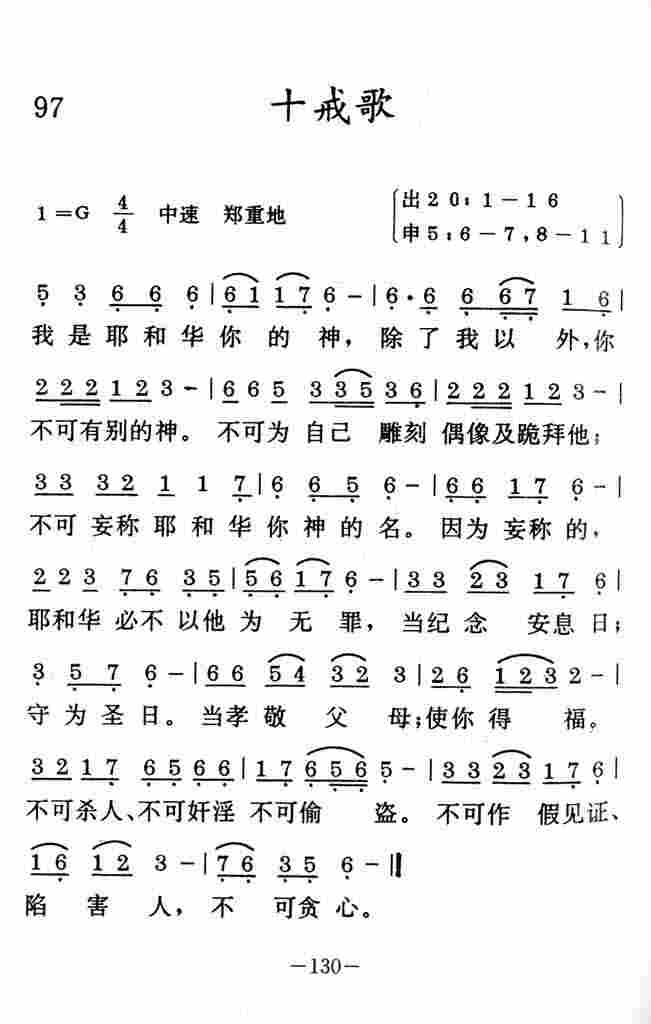 97 十戒歌
1=G 4/4 中速 郑重地
出20:1-16
申5:6-7,8-11
5 3 6 6 6 | 6 1 1 7 6 - | 6· 6 6 6 7 1 6 |
我是耶和华你的神，除了我以外，你
2 2 2 1 2 3 - | 6 6 5 3 3 5 3 6 | 2 2 2 1 2 3 - |
不可有别的神。不可为自己雕刻偶像及跪拜他；
3 3 3 2 1 1 7 | 6 6 5 6 - | 6 6 1 7 6 - |
不可妄称耶和华你神的名。因为妄称的，
2 2 3 7 6 3 5 | 5 6 1 7 6 - | 3 3 2 3 1 7 6 |
耶和华必不以他为无罪，当纪念安息日；
3 5 7 6 - | 6 6 5 4 3 2 3 | 2 6 1 2 3 2 - |
守为圣日。当孝敬父母；使你得福。
3 2 1 7 6 5 6 6 | 1 7 6 5 6 5 - | 3 3 2 3 1 7 6 |
不可杀人、不可奸淫不可偷盗。不可作假见证、
1 6 1 2 3 - | 7 6 3 5 6 - ||
陷害人，不可贪心。
-130-